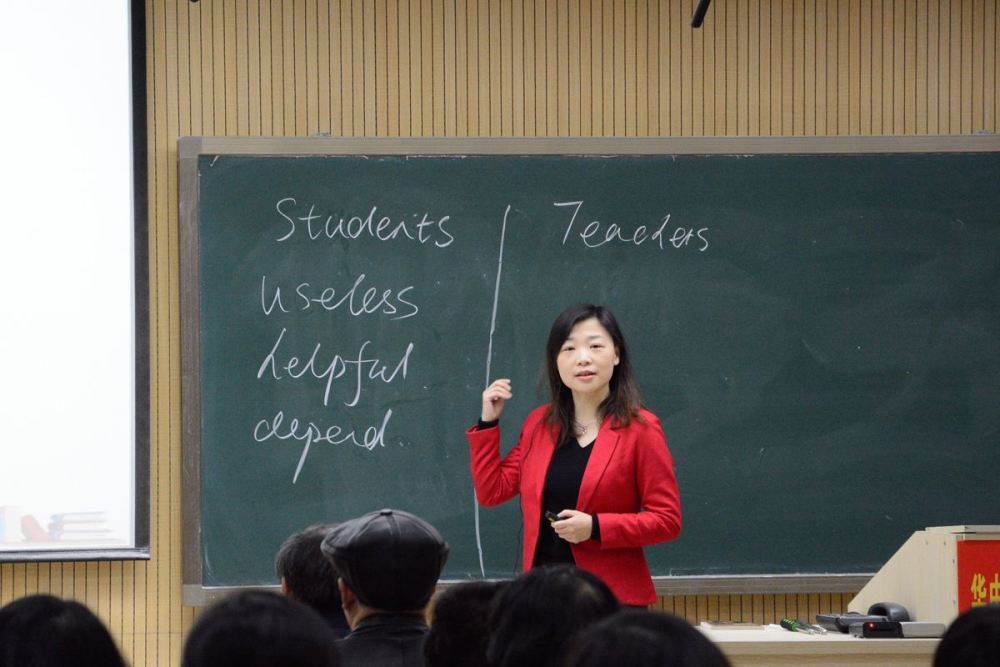 Students
Teachers
useless
helpful
depend
华中